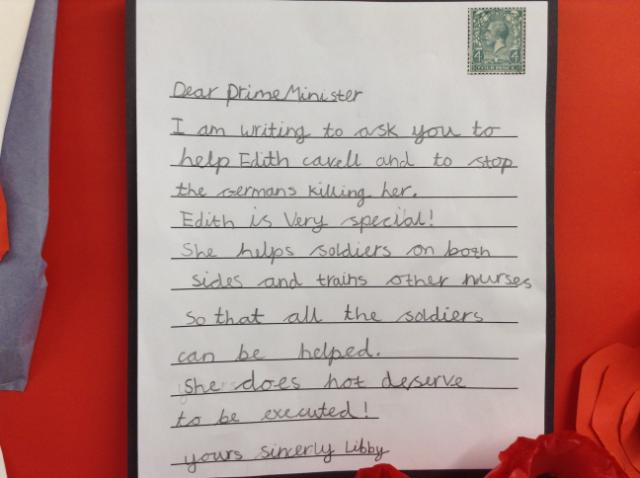 Dear prime Minister
I am writing to ask you to
help Edith cavell and to stop
the Germans killing her.
Edith is Very special!
She helps soldiers on both
sides and trains other nurses
so that all the soldiers
can be helped.
She does not deserve
to be executed!
yours sincerly Libby